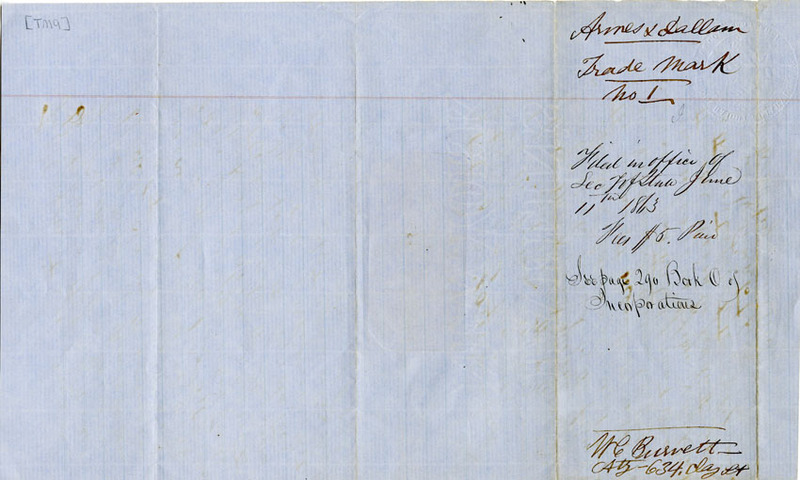 [TM9]
Armes & Dallam
Trade Mark
No 1
Filed in office of
Sec of State June
11th 1863
Fees $5. Paid
See page 290 Book O of
Incorporations
W C Burnett
Atty 634. Clay St